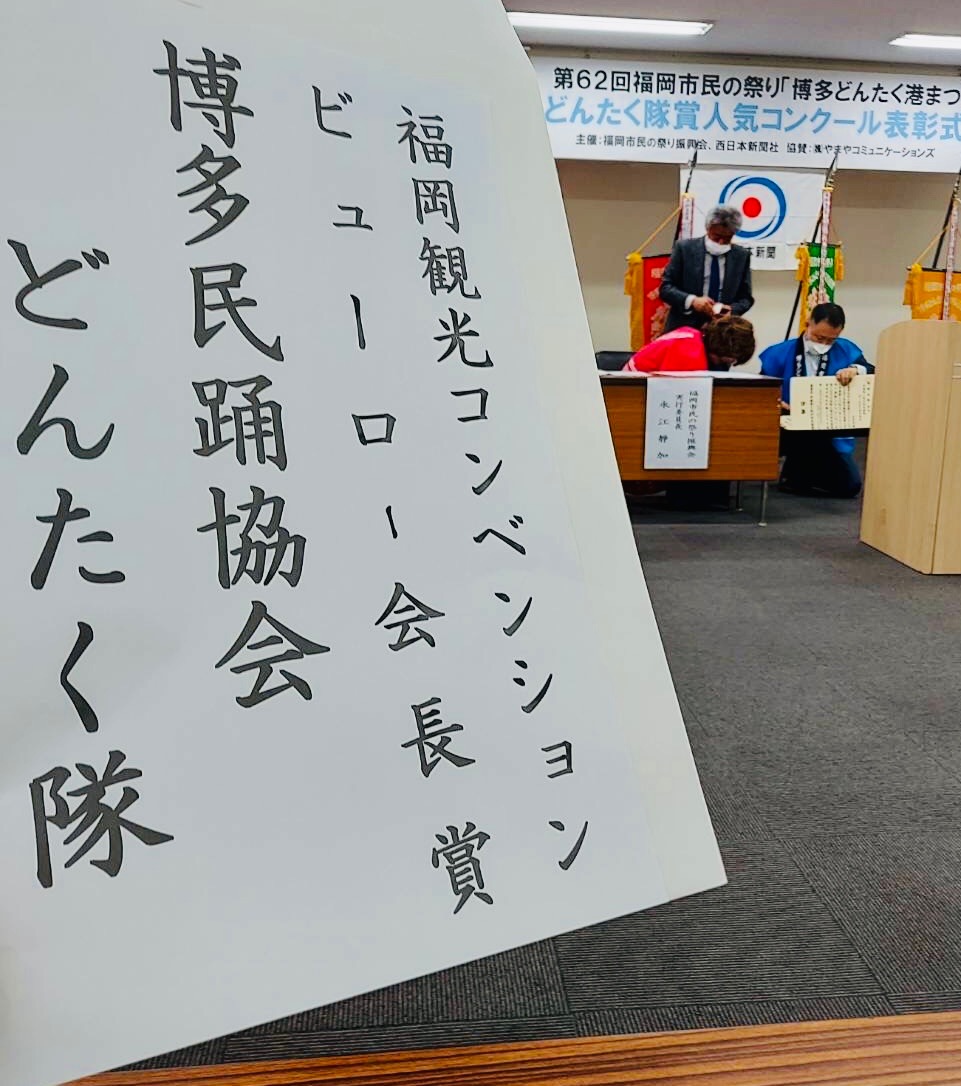 福岡観光コンベンション
ビューロー会長賞
博多民踊協会
どんたく隊
第62回福岡市民の祭り「博多どんたく港まつ
どんたく隊賞人気コンクール表彰式
主催:福岡市民の祭り振興会、西日本新聞社 協賛:㈱やまやコミュニケーションズ
本新聞
福岡市民の祭り振興会
実行委員長
永江静加